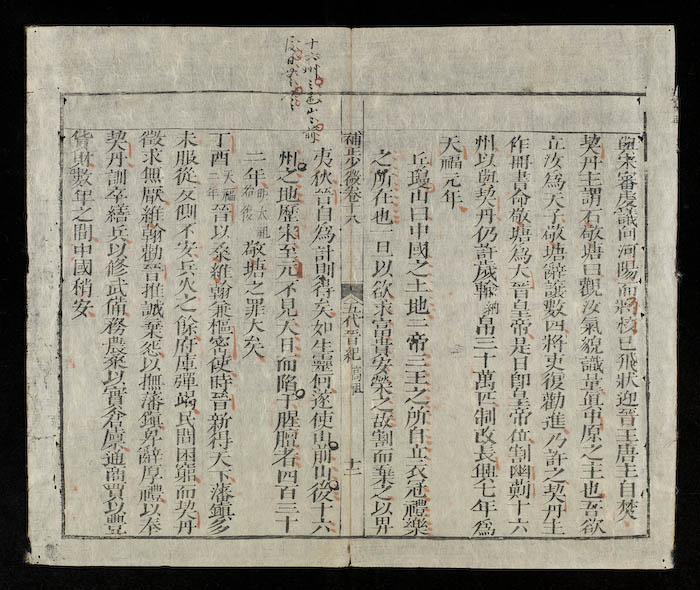 與宋審虔議向河陽而將校已飛狀迎晉王唐主自焚
契丹主謂石敬塘曰觀汝氣貌識量眞中原之主也吾欲
立汝爲天子敬塘辭讓數四將吏復勸進乃許之契丹主
作冊書命敬塘爲大晉皇帝是日卽皇帝位割幽薊十六
州以與契丹仍許歲輸帛三十萬匹制改長興七年爲
天福元年
丘瓊山曰中國之土地二帝三王之所自立衣冠禮樂
之所在也一旦以欲求富貴安榮之故割而棄之以畀
補少微卷十八
五代晉紀 高祖 十二
夷狄晉自爲計則得矣如生靈何遂使山前山後十六
州之地歷宋至元不見天日而陷于腥膻者四百三十
二年 敬塘之罪大矣
丁酉 天福二年 晉以桑維翰兼樞密使時晉新得天下藩鎭多
未服從反側不安兵火之餘府庫殫竭民間困窮而契丹
徵求無厭維翰勸晉推誠棄怨以撫藩鎭卑辭厚禮以奉
契丹訓卒繕兵以修武備務農桑以實倉廩通商賈以豐
貨財數年之間中國稍安